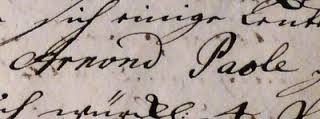 sich einige Leute
Arnond Paole
ich würckl: